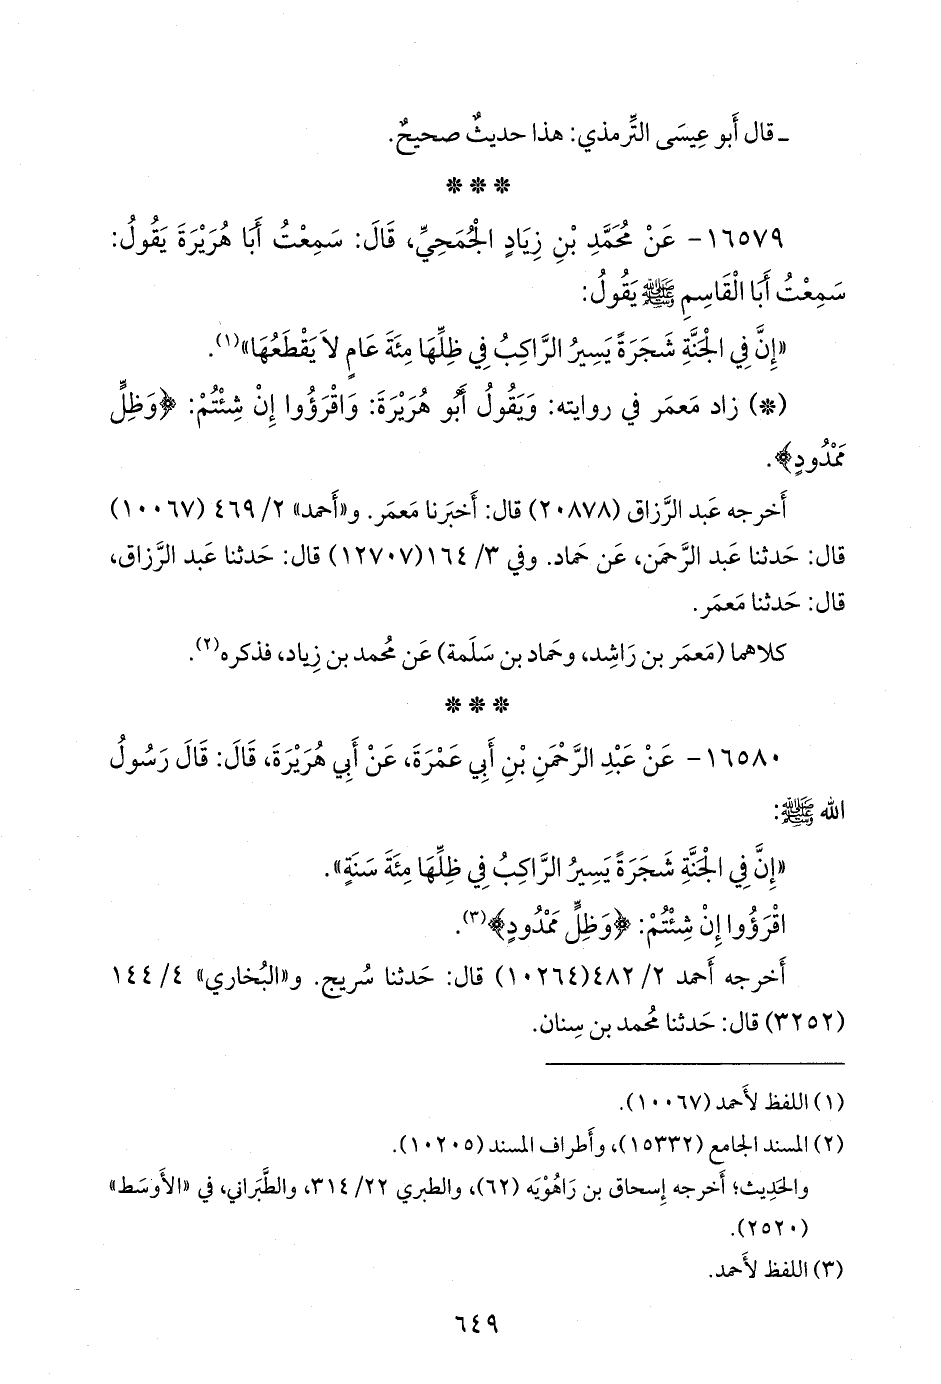 ـ قال أَبو عِيسَى التِّرمذي: هذا حديثٌ صحيحٌ.
* * *
١٦٥٧٩- عَنْ مُحَمَّدِ بْنِ زِيَادٍ الْجُمَحِيِّ، قَالَ: سَمِعْتُ أَبَا هُرَيْرَةَ يَقُولُ:
سَمِعْتُ أَبَا الْقَاسِمِ ﷺ يَقُولُ:
«إِنَّ فِي الْجَنَّةِ شَجَرَةً يَسِيرُ الرَّاكِبُ فِي ظِلِّهَا مِئَةَ عَامٍ لاَ يَقْطَعُهَا»(١).
(*) زاد مَعمَر في روايته: وَيَقُولُ أَبُو هُرَيْرَةَ: وَاقْرَؤُوا إِنْ شِئْتُمْ: ﴿وَظِلٍّ
مَمْدُودٍ﴾.
أَخرجه عَبد الرَّزاق (٢٠٨٧٨) قال: أَخبَرنا مَعمَر. و«أَحمد» ٢/ ٤٦٩ (١٠٠٦٧)
قال: حَدثنا عَبد الرَّحمَن، عَن حَماد. وفي ٣/ ١٦٤(١٢٧٠٧) قال: حَدثنا عَبد الرَّزاق،
قال: حَدثنا مَعمَر.
كلاهما (مَعمَر بن رَاشِد، وحَماد بن سَلَمة) عَن مُحمد بن زِياد، فذكره(٢).
* * *
١٦٥٨٠- عَنْ عَبْدِ الرَّحْمَنِ بْنِ أَبِي عَمْرَةَ، عَنْ أَبِي هُرَيْرَةَ، قَالَ: قَالَ رَسُولُ
الله ﷺ:
«إِنَّ فِي الْجَنَّةِ شَجَرَةً يَسِيرُ الرَّاكِبُ فِي ظِلِّهَا مِئَةَ سَنَةٍ».
اقْرَؤُوا إِنْ شِئْتُمْ: ﴿وَظِلٍّ مَمْدُودٍ﴾(٣).
أَخرجه أَحمد ٢/ ٤٨٢(١٠٢٦٤) قال: حَدثنا سُريج. و«البُخاري» ٤/ ١٤٤
(٣٢٥٢) قال: حَدثنا مُحمد بن سِنان.
(١) اللفظ لأَحمد (١٠٠٦٧).
(٢) المسند الجامع (١٥٣٣٢)، وأَطراف المسند (١٠٢٠٥).
والحَدِيث؛ أَخرجه إِسحاق بن رَاهُوْيَه (٦٢)، والطبري ٢٢/ ٣١٤، والطَّبَراني، في «الأَوسَط»
(٢٥٢٠).
(٣) اللفظ لأَحمد.
٦٤٩